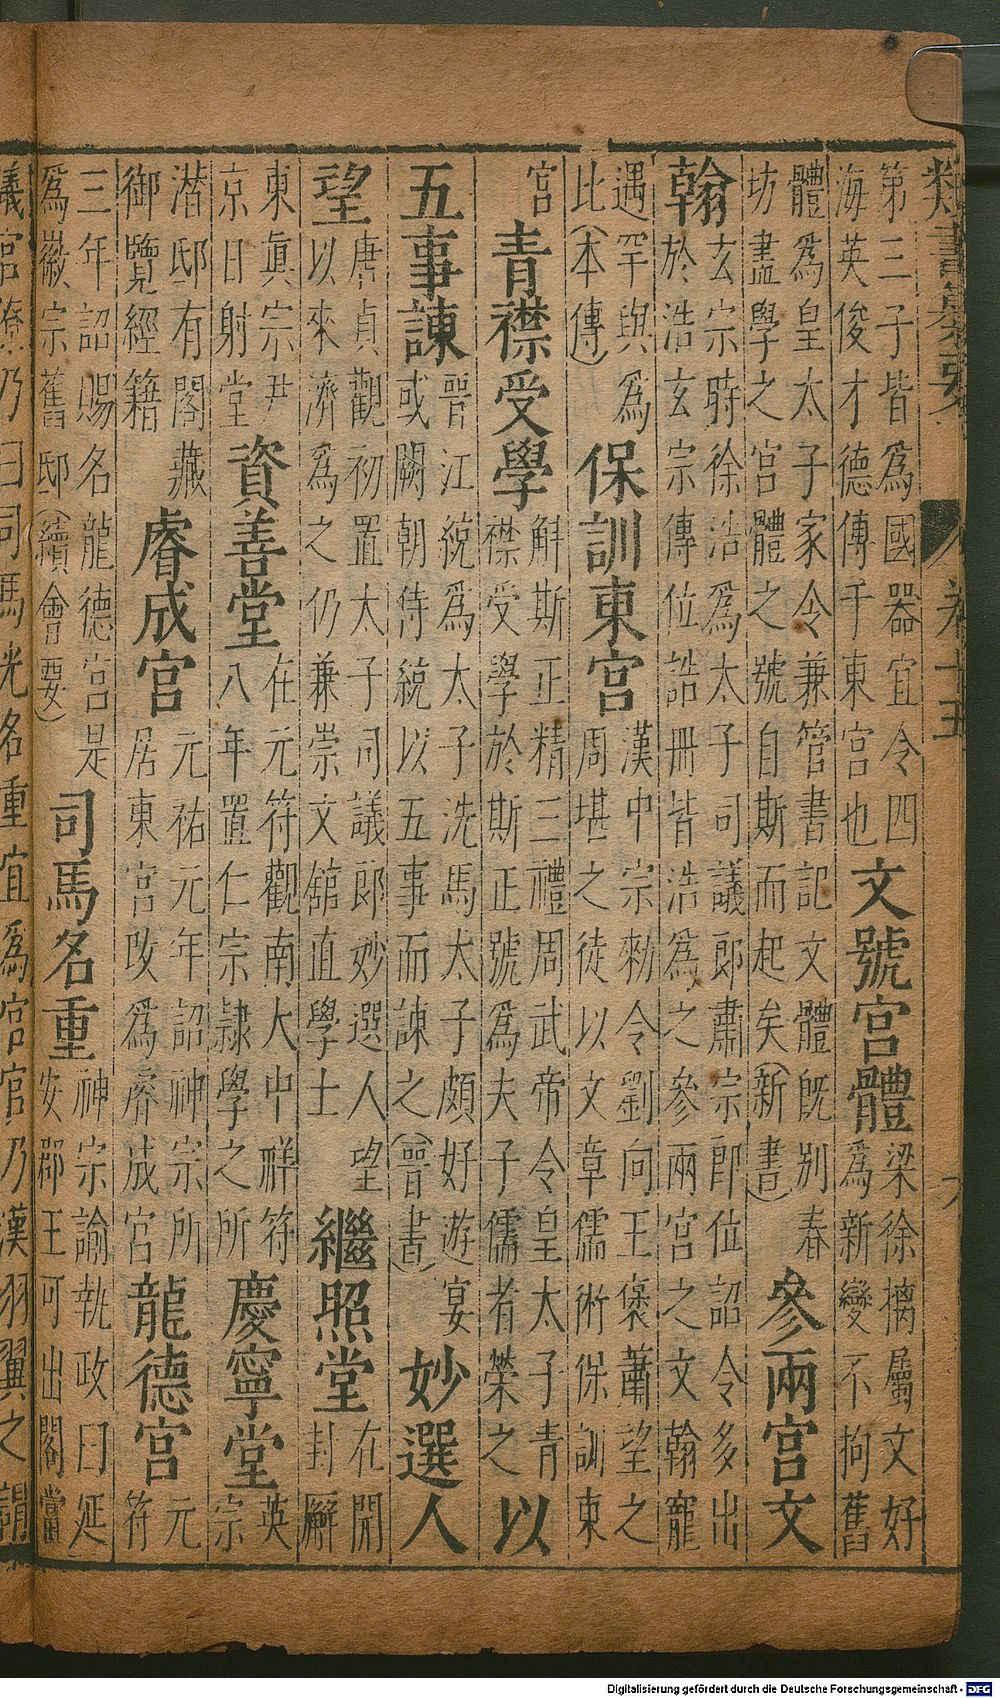 類書纂要 卷十五 六
第三子皆爲國器宜令四
海英俊才德傳于東宮也
文號宮體
梁徐摛屬文好
爲新變不拘舊
體爲皇太子家令兼管書記文體旣別春
坊盡學之宮體之號自斯而起矣(新書)
參兩宮文
翰
玄宗時徐浩爲太子司議郎肅宗即位詔令多出
於浩玄宗傳位誥冊皆浩爲之參兩宮之文翰寵
遇罕與爲
比(本傳)
保訓東宮
漢中宗勑令劉向王褒蕭望之
周堪之徒以文章儒術保訓東
宮
青襟受學
斛斯正精三禮周武帝令皇太子青
襟受學於斯正號爲夫子儒者榮之
以
五事諫
晉江統爲太子洗馬太子頗好遊宴
或闕朝侍統以五事而諫之(晉書)
妙選人
望
唐貞觀初置太子司議郎妙選人望
以來濟爲之仍兼崇文舘直學士
繼照堂
在開
封廨
東眞宗尹
京日射堂
資善堂
在元符觀南大中祥符
八年置仁宗隷學之所
慶寧堂
英
宗
潜邸有閣藏
御覽經籍
睿成宮
元祐元年詔神宗所
居東宮改爲睿成宮
龍德宮
元
符
三年詔賜名龍德宮是
爲徽宗舊邸(續會要)
司馬名重
神宗諭執政曰延
安郡王可出閣當
議宮僚乃曰司馬光名重宜爲宮官乃漢羽翼之謂
Digitalisierung gefördert durch die Deutsche Forschungsgemeinschaft - DFG